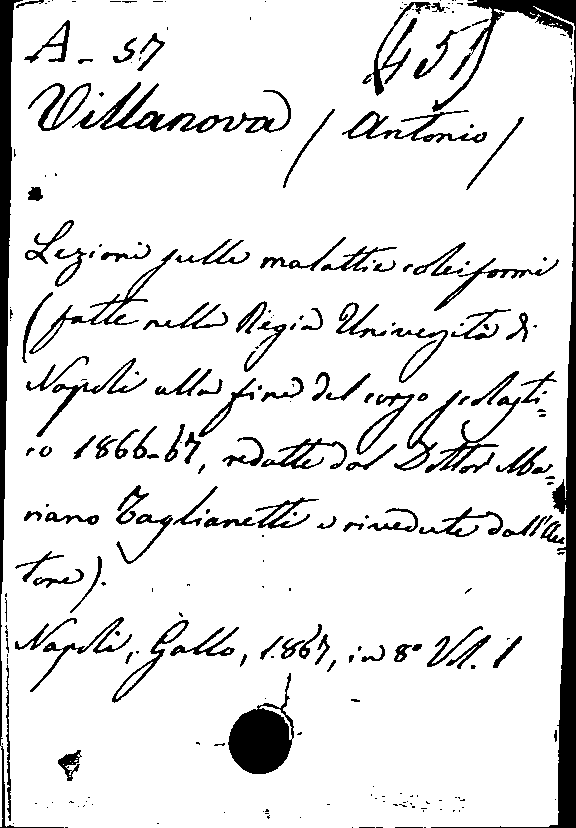 A - 57 (451)
Villanova / Antonio /
Lezioni sulle malattie coleiformi
(fatte nella Regia Università di
Napoli alla fine del corso scolasti=
co 1866-67, redatte dal Dottor Ma=
riano Taglianetti e rivedute dall'Au=
tore).
Napoli, Gallo, 1867, in 8° Vol. 1